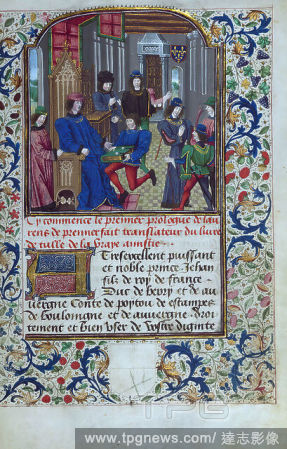 Cy commence le premier prologue de lau
rens de premierfait translateur du liure
de tulle de la vraye amistie
Tresexcellent puissant
et noble prince Jehan
filz de roy de france
Duc de berry et de au
uergne Conte de poytou de estampes
de boulomgne et de auuergne Droi
tement et bien vser de vostre dignite
TPG
www.tpgnews.com / 達志影像